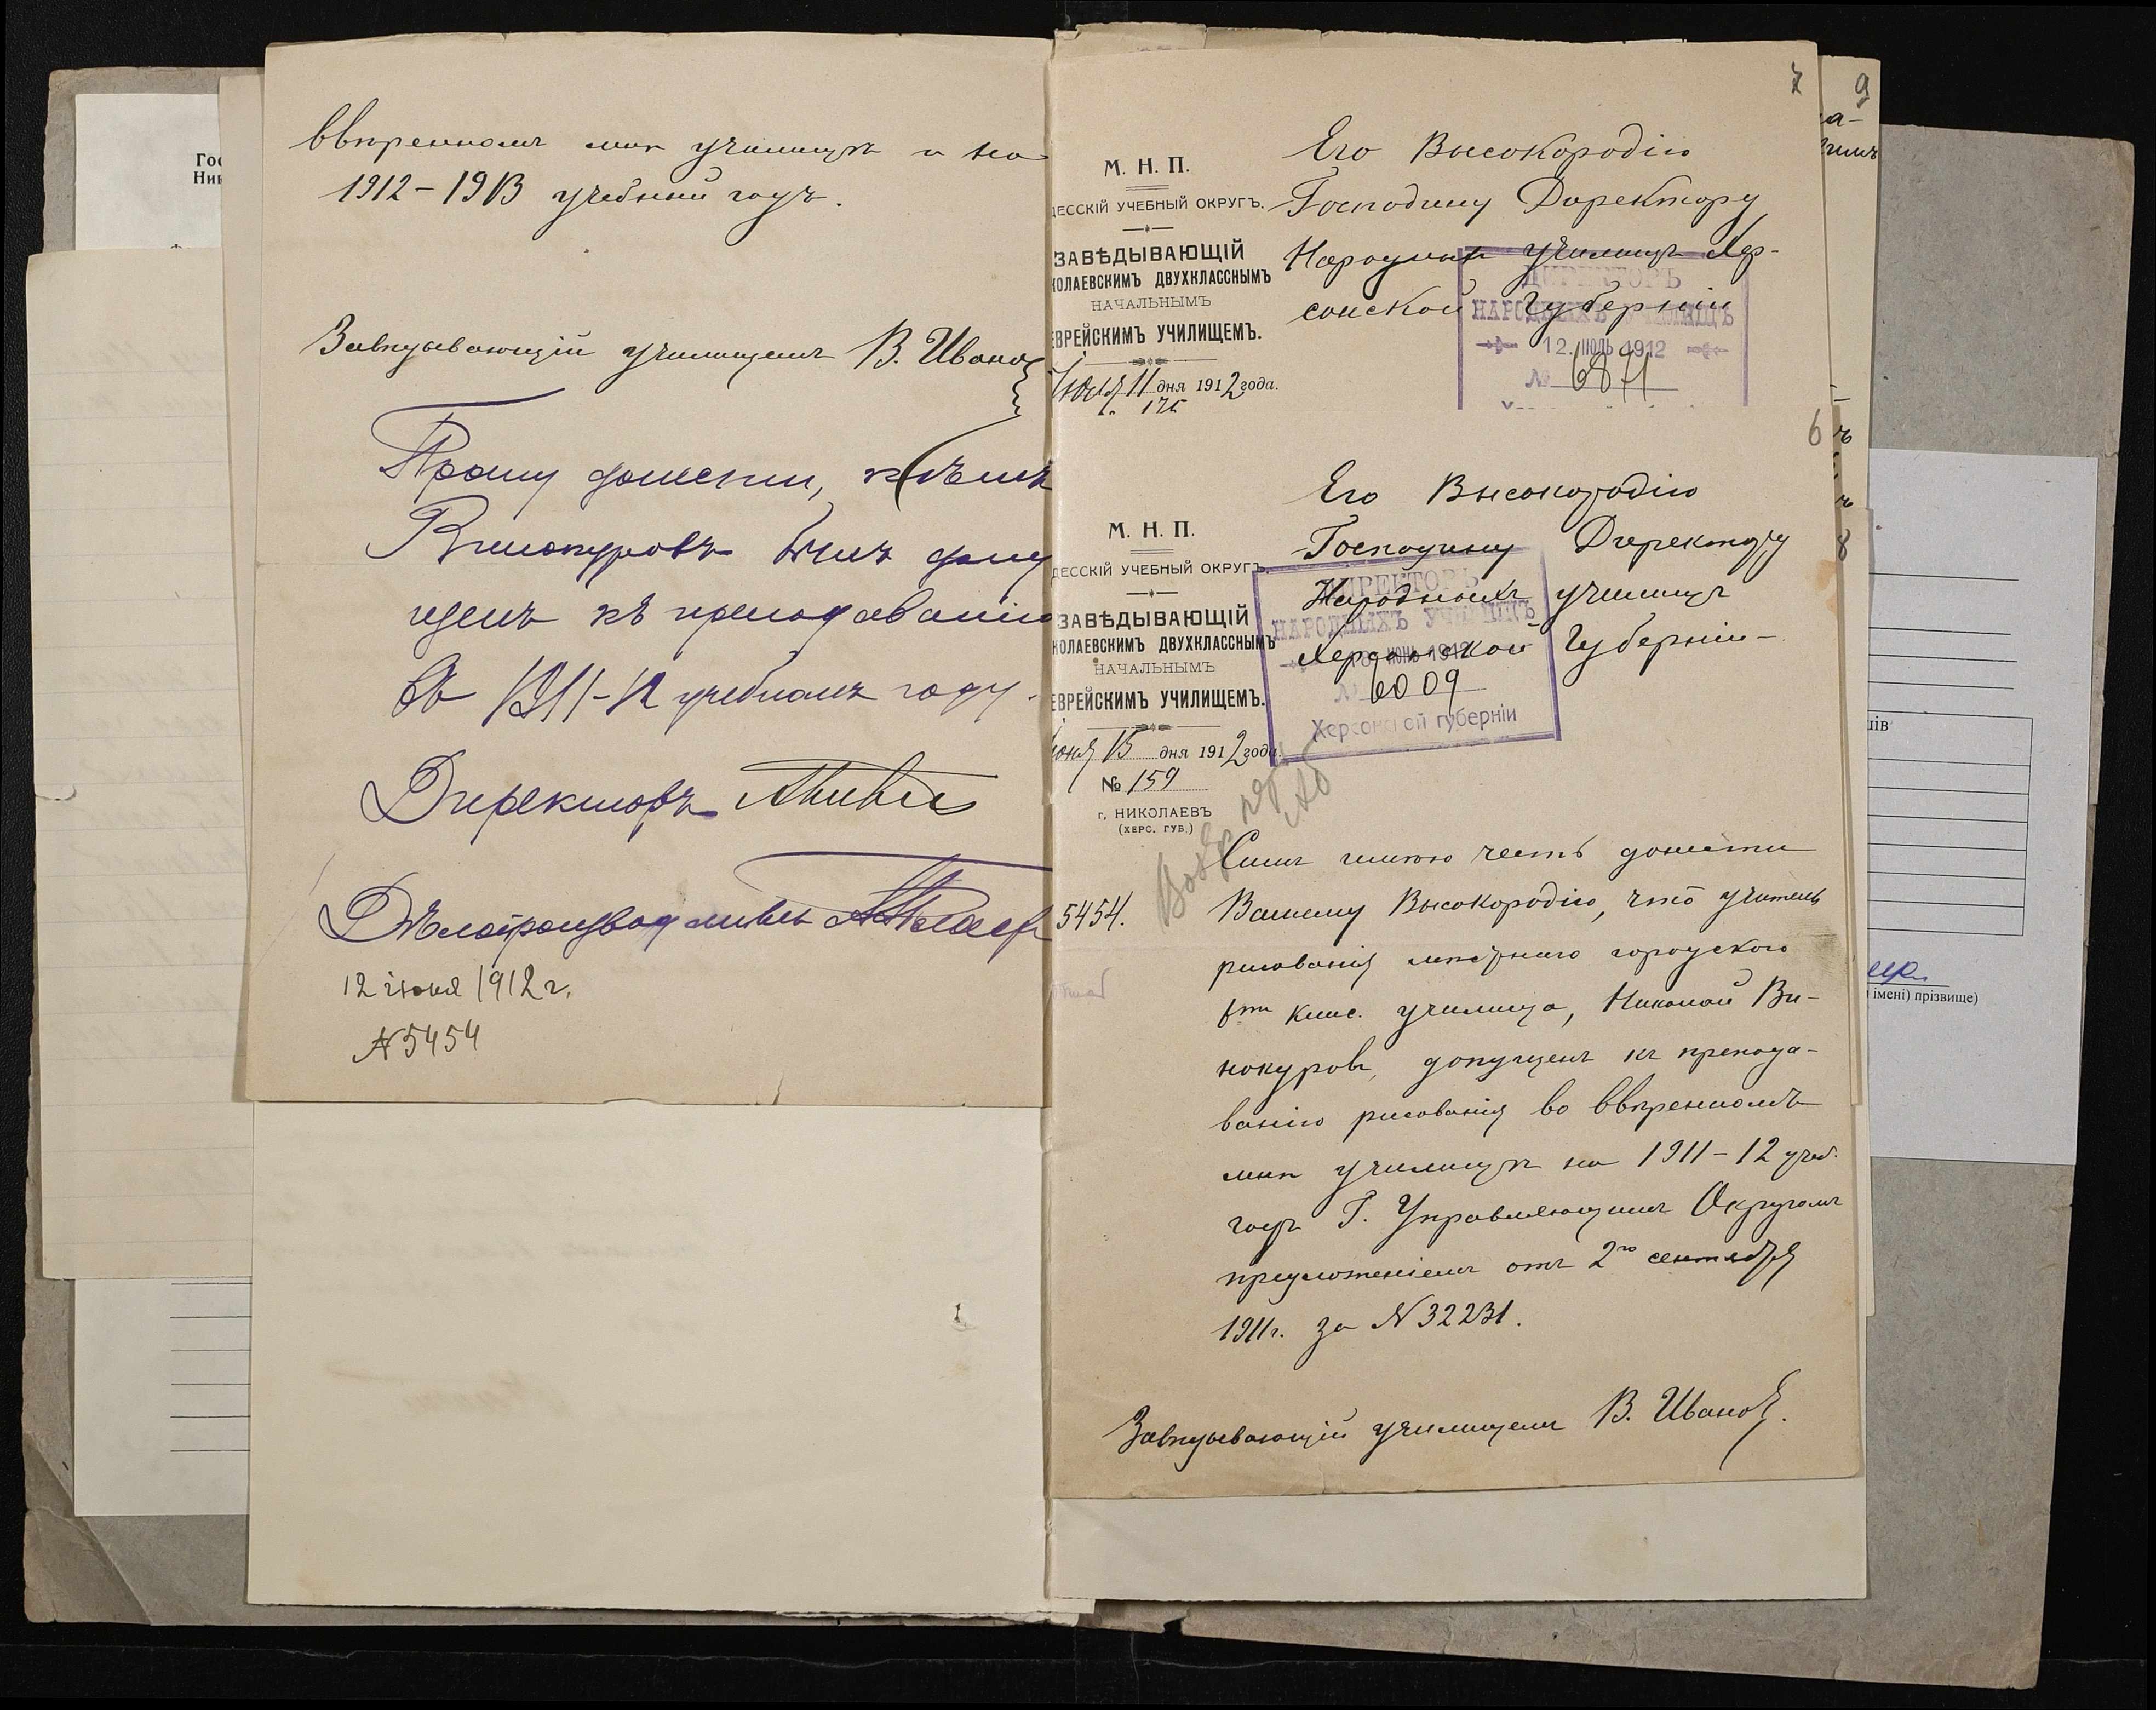 ввѣренномъ мнѣ училищѣ и на
1912-1913 учебный годъ.
Завѣдывающій училищемъ В. Ивано
Прошу донести, кѣмъ
Винокуровъ былъ допу
щенъ къ преподаванію
въ 1911-12 учебномъ году.
Директоръ
Дѣлопроизводитель
12 іюня 1912 г.
№ 5454
1
7
9
Его Высокородію
Господину Директору
Народныхъ училищъ Хер-
сонской Губерніи
М. Н. П.
ДЕССКІЙ УЧЕБНЫЙ ОКРУГЪ.
ЗАВѢДЫВАЮЩІЙ
КОЛАЕВСКИМЪ ДВУХКЛАССНЫМЪ
НАЧАЛЬНЫМЪ
ЕВРЕЙСКИМЪ УЧИЛИЩЕМЪ.
11 дня 1912 года.
176
ДИРЕКТОРЪ
НАРОДНЫХЪ УЧИЛИЩЪ
12. 1912
№ 6871
6
8
Его Высокородію
Господину Директору
Народныхъ училищъ
Херсонской Губерніи
М. Н. П.
ДЕССКІЙ УЧЕБНЫЙ ОКРУГЪ.
ЗАВѢДЫВАЮЩІЙ
КОЛАЕВСКИМЪ ДВУХКЛАССНЫМЪ
НАЧАЛЬНЫМЪ
ЕВРЕЙСКИМЪ УЧИЛИЩЕМЪ.
юня 15 дня 1912 года.
№ 159
г. НИКОЛАЕВЪ
(ХЕРС. ГУБ.)
ДИРЕКТОРЪ
НАРОДНЫХЪ УЧИЛИЩЪ
ІЮНЬ 1912
№ 6009
Херсонской губерніи
5454.
Симъ имѣю честь донести
Вашему Высокородію, что учитель
рисованія мѣстнаго городского
класс. училища, Николай Ви-
нокуровъ, допущенъ къ препода-
ванію рисованія во ввѣренномъ
мнѣ училищѣ на 1911-12 учеб.
годъ Г. Управляющимъ Округомъ
предложеніемъ отъ 2го сентября
1911г. за № 32231.
Завѣдывающій училищемъ В. Ивановъ.
імені) прізвище)